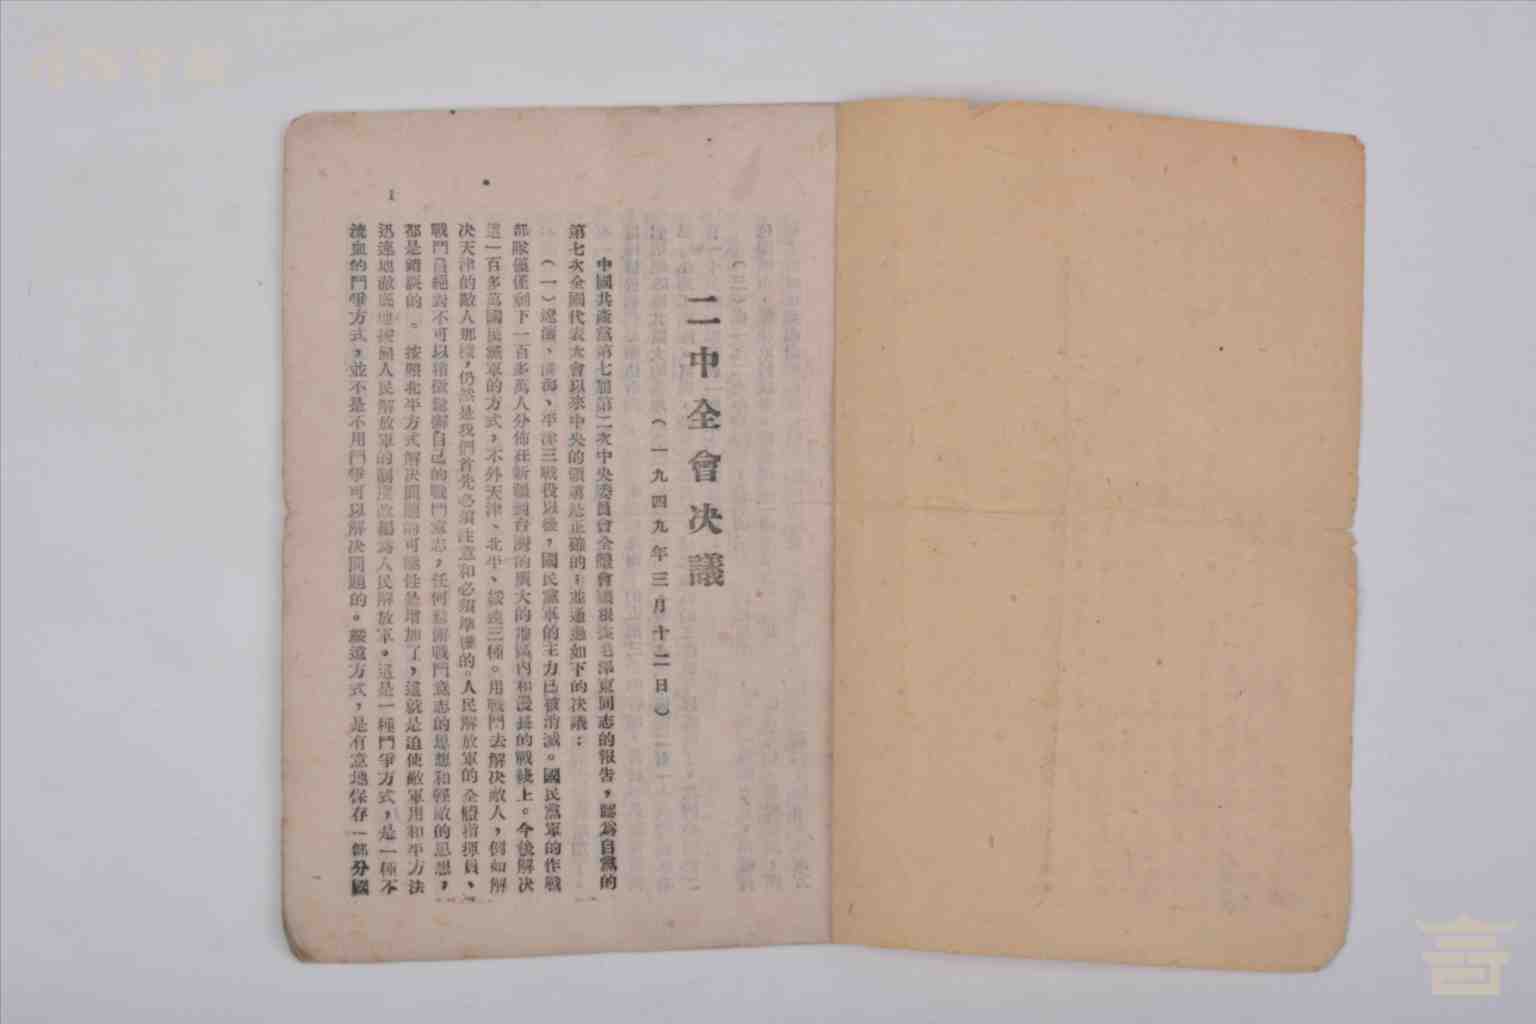 二中全會决議
(一九四九年三月十二日)
中國共產黨第七屆第二次中央委員會全體會議根據毛澤東同志的報告，認爲自黨的
第七次全國代表大會以來中央的領導是正確的；並通過如下的决議：
(一)遼瀋、淮海、平津三戰役以後，國民黨軍的主力已被消滅。國民黨軍的作戰
部隊僅僅剩下一百多萬人分佈在新疆到台灣的廣大的地區內和漫長的戰綫上。今後解决
這一百多萬國民黨軍的方式，不外天津、北平、綏遠三種。用戰鬥去解决敵人，例如解
决天津的敵人那樣，仍然是我們首先必須注意和必須準備的。人民解放軍的全體指揮員、
戰鬥員絕對不可以稍微鬆懈自己的戰鬥意志，任何鬆懈戰鬥意志的思想和輕敵的思想，
都是錯誤的。按照北平方式解决問題的可能性是增加了，這就是迫使敵軍用和平方法
迅速地徹底地按照人民解放軍的制度改編爲人民解放軍。這是一種鬥爭方式，是一種不
流血的鬥爭方式，並不是不用鬥爭可以解决問題的。綏遠方式，是有意地保存一部分國
1